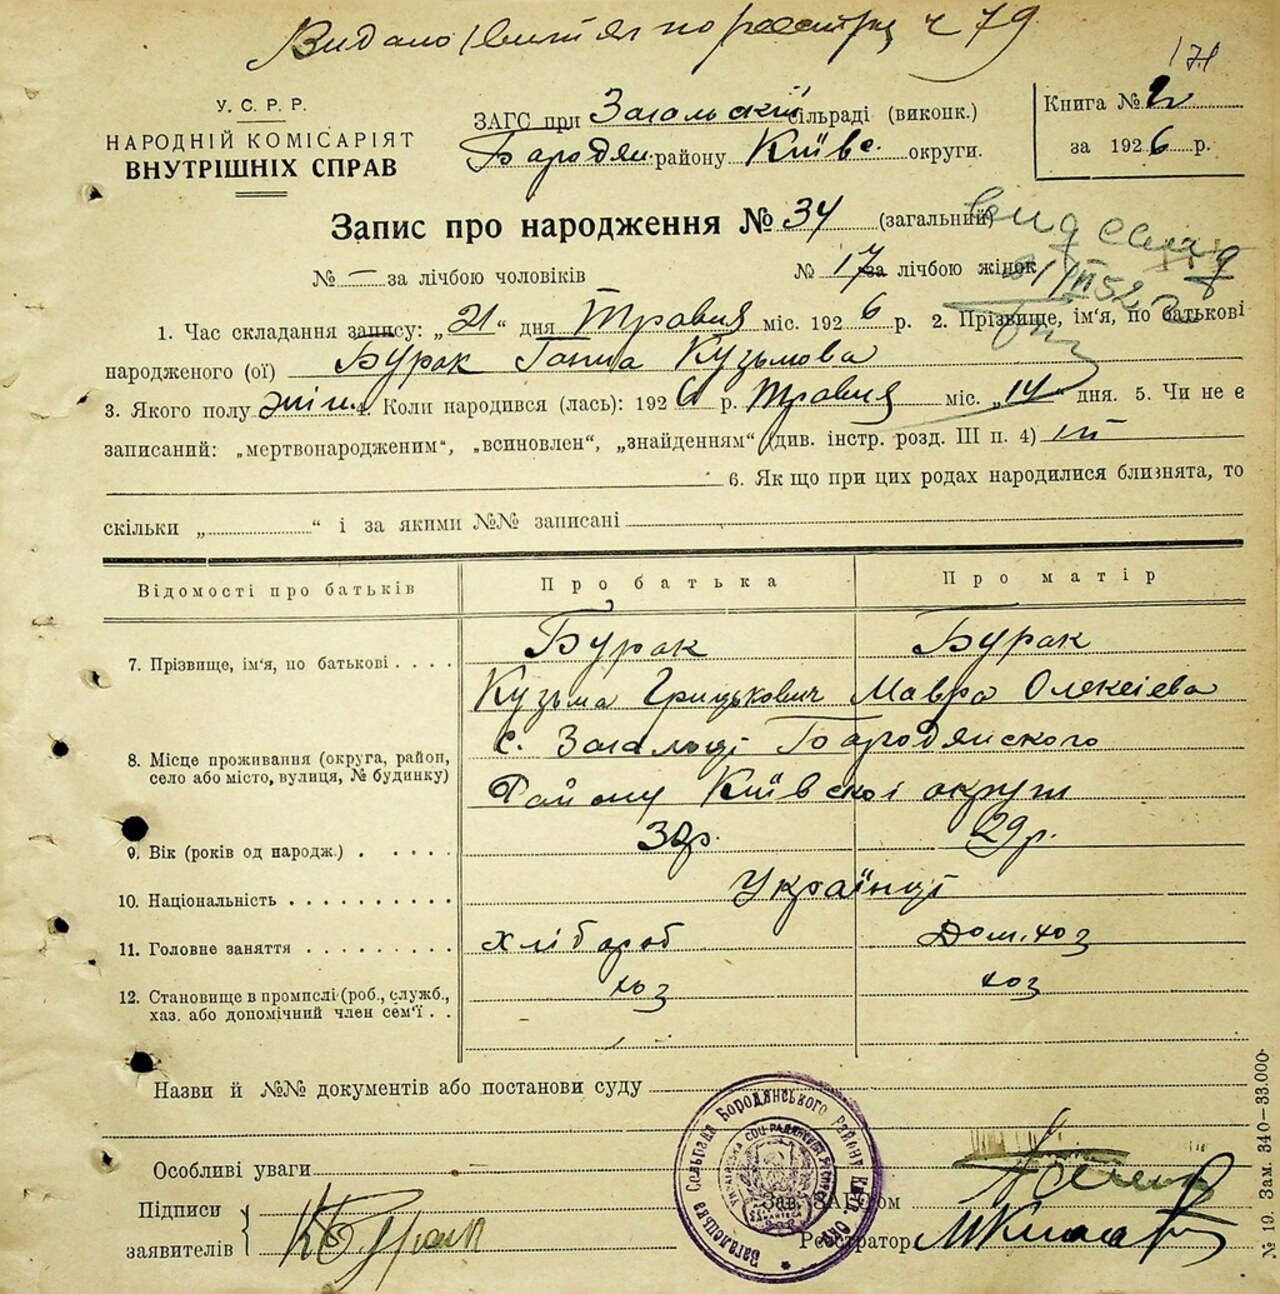 Видано витяг по реестру ч 79
171
У. С. Р. Р.
НАРОДНІЙ КОМІСАРІЯТ
ВНУТРІШНІХ СПРАВ
ЗАГС при Загальский сільраді (виконк.)
Бородян. району Київс. округи.
Книга № 2
за 1926 р.
Запис про народження № 34 (загальний)
№ — за лічбою чоловіків № 17 за лічбою жінок
1. Час складання запису: „21“ дня Травня міс. 1926 р. 2. Прізвище, ім'я, по батькові
народженого (ої) Бурак Ганна Кузьмова
3. Якого полу жін. 4. Коли народився (лась): 1926 р. Травня міс. „14“ дня. 5. Чи не є
записаний: „мертвонародженим“, „всиновлен“, „знайденням“ (див. інстр. розд. III п. 4) ні
6. Як що при цих родах народилися близнята, то
скільки „ “ і за якими №№ записані
Відомості про батьків Про батька Про матір
7. Прізвище, ім'я, по батькові . . . . Бурак Бурак
Кузьма Грицькович Мавра Олексієва
8. Місце проживання (округа, район, село або місто, вулиця, № будинку) с. Загальці Бородянского
Району Київскоі округи
9. Вік (років од народж.) . . . . . 30р. 29р.
10. Національність . . . . . . . . . . Українці
11. Головне заняття . . . . . . . . . хлібороб Дом. хоз
12. Становище в промислі (роб., служб., хаз. або допомічний член сем'ї . . хоз хоз
Назви й №№ документів або постанови суду
Особливі уваги
Підписи
заявителів КБурак
Зав. ЗАГСом
Реєстратор
Загалецька Сельрада Бородянського району Київ. окр.
№ 19. Зам. 340—33.000